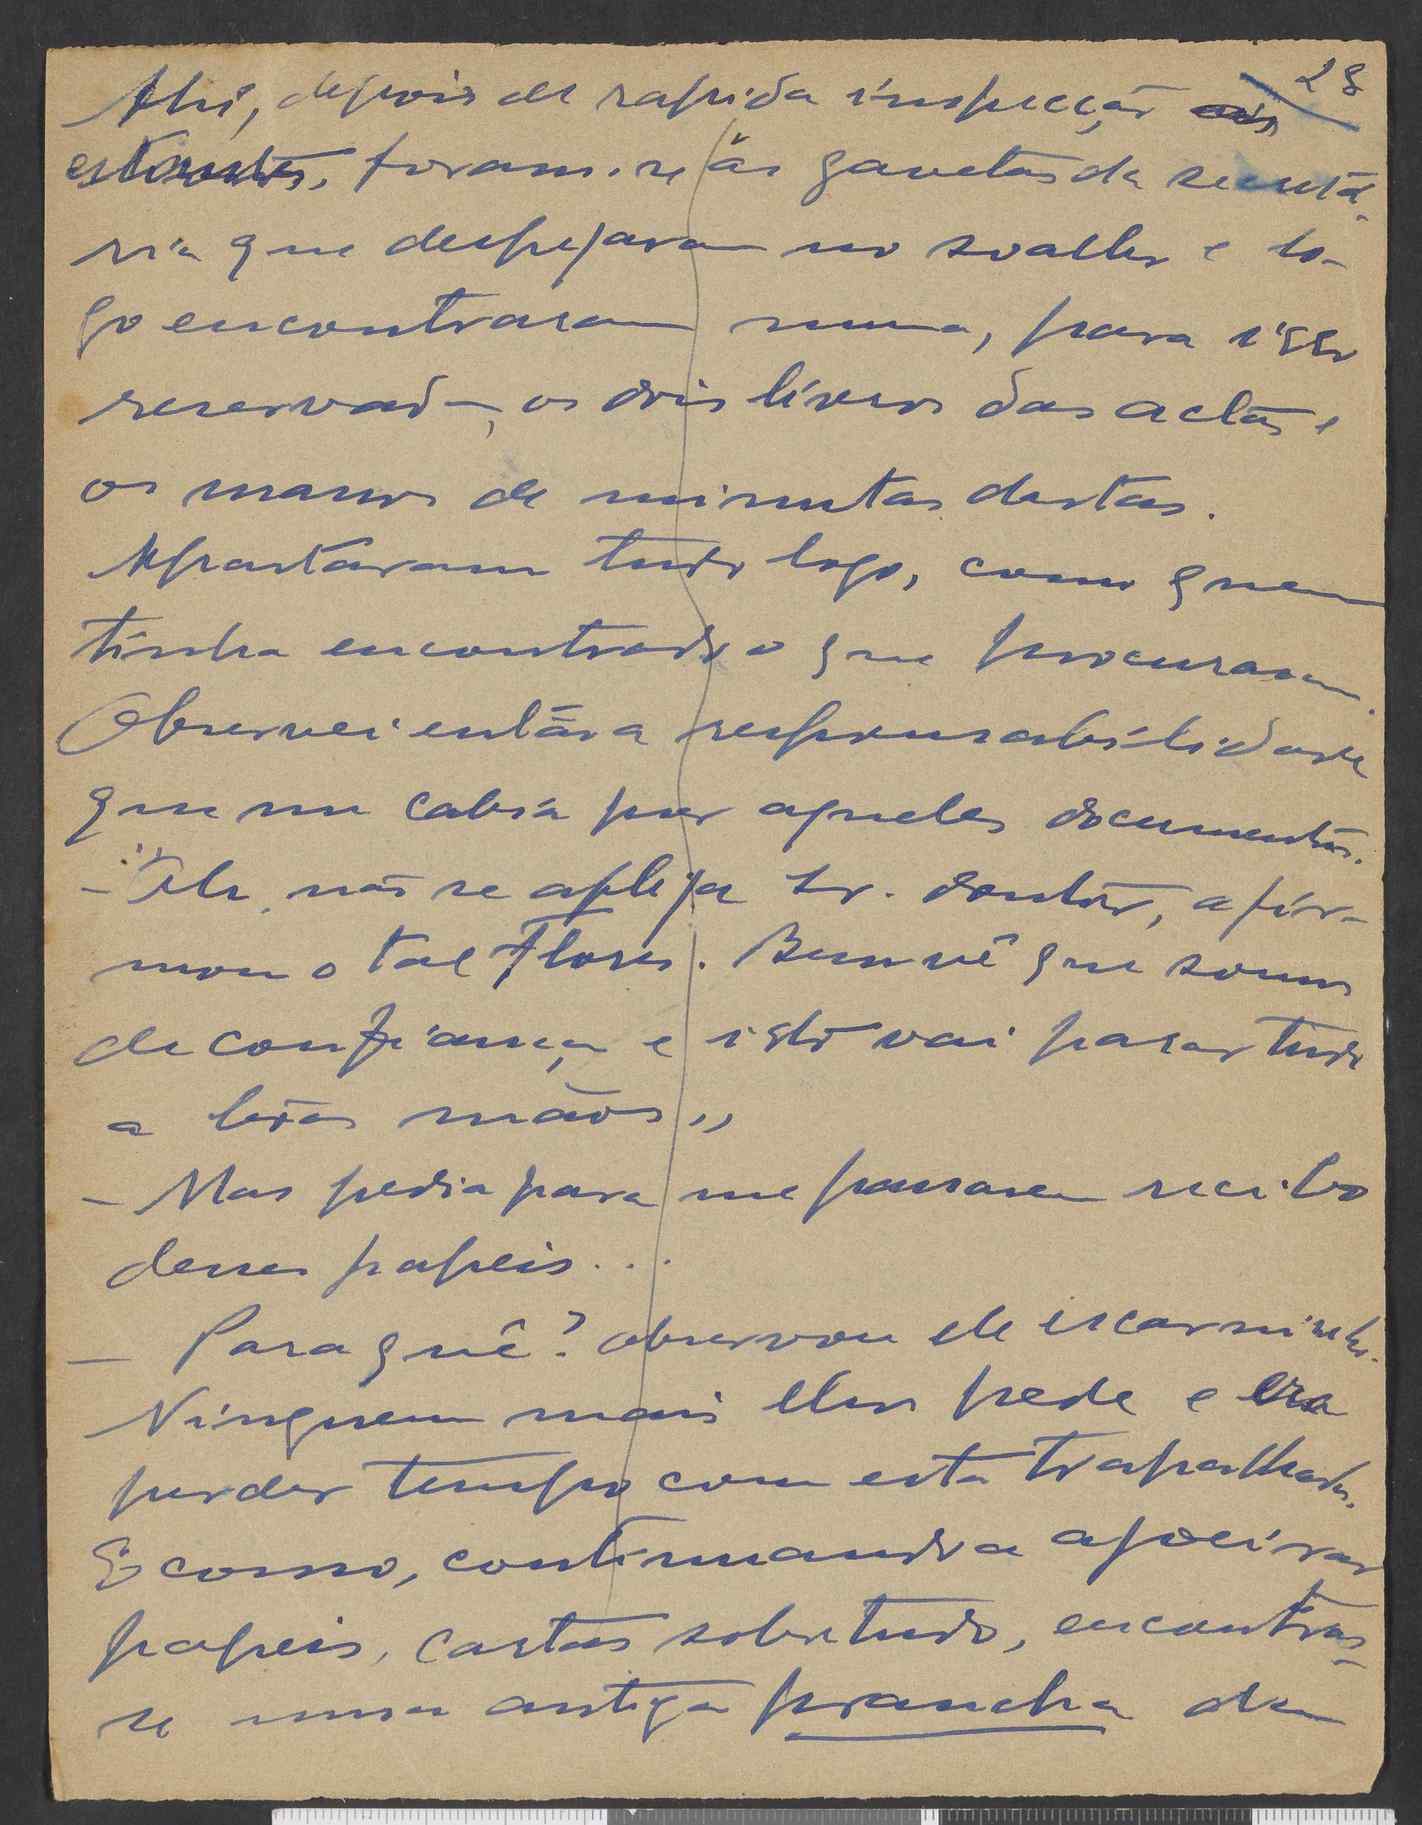 28
Ahi, depois de rapida inspecção aos
estantes, foram-se ás gavetas da secretá-
ria que despejaram no soalho e lo-
go encontraram numa, para isso
reservada, os dois livros das actas e
os massos de minutas destas.
Apartaram tudo logo, como quem
tinha encontrado o que procuravam.
Observei então a responsabilidade
que me cabia por aqueles documentos.
— "Oh, não se aflija sr. doutor, afir-
mou o tal Flores. Bem vê que somos
de confiança e isto vai parar tudo
a boas mãos„
— Mas pedia para me passarem recibo
desses papeis...
— Para quê? observou ele escarninho.
Ninguem mais lhos pede e era
perder tempo com esta trapalhada.
E como, continuando a apoeirar
papeis, cartas sobretudo, encontras-
se uma antiga prancha da